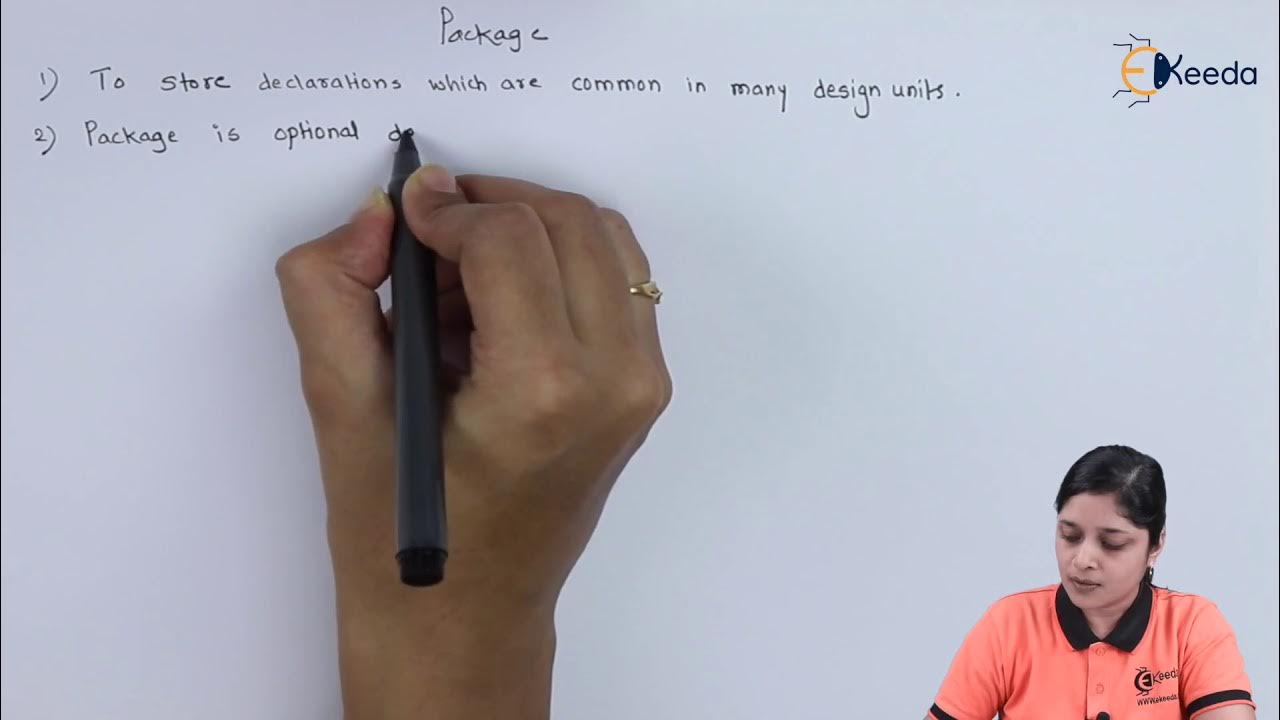 Package
EKeeda
1) To store declarations which are common in many design units.
2) Package is optional de
EKeeda
www.ekeeda.